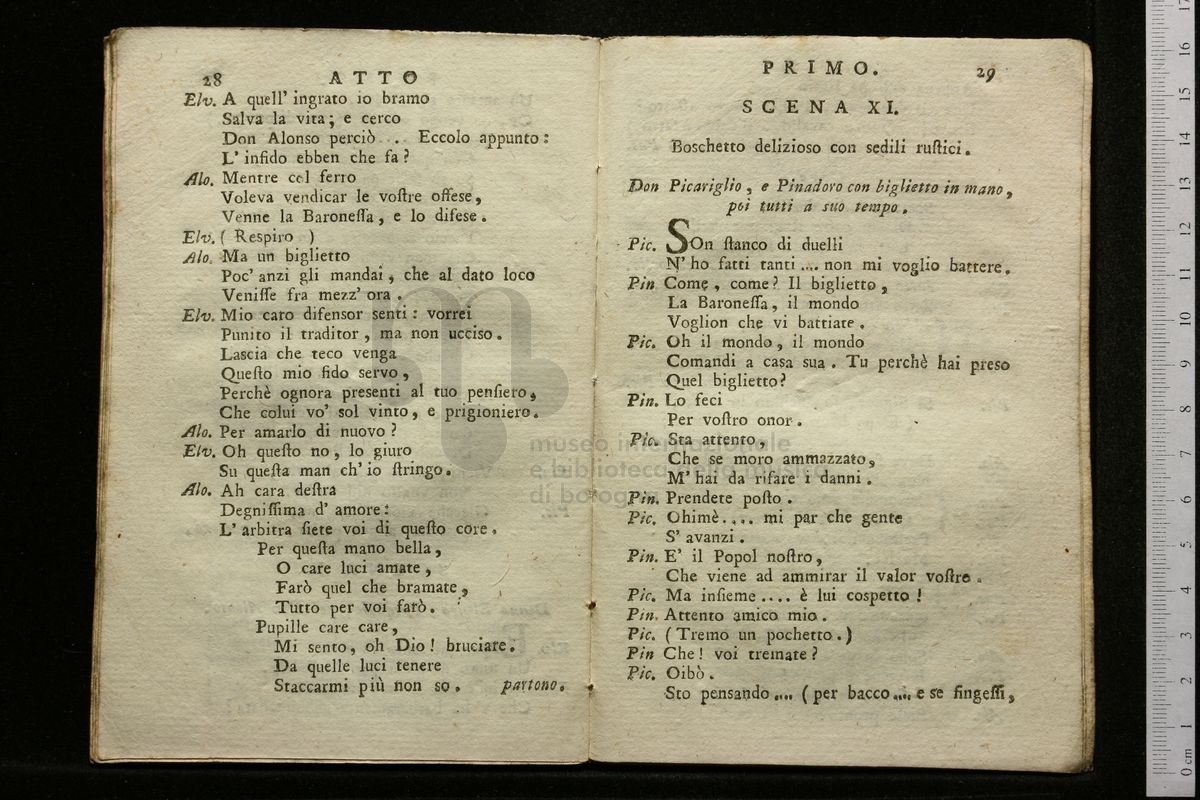 28 ATTO
Elv. A quell' ingrato io bramo
Salva la vita; e cerco
Don Alonso perciò ... Eccolo appunto:
L' infido ebben che fa?
Alo. Mentre col ferro
Voleva vendicar le voſtre offeſe,
Venne la Baroneſſa, e lo difeſe.
Elv. ( Reſpiro )
Alo. Ma un biglietto
Poc' anzi gli mandai, che al dato loco
Veniſſe fra mezz' ora.
Elv. Mio caro difenſor ſenti: vorrei
Punito il traditor, ma non ucciſo.
Laſcia che teco venga
Queſto mio fido ſervo,
Perchè ognora preſenti al tuo penſiero,
Che colui vo' ſol vinto, e prigioniero.
Alo. Per amarlo di nuovo?
Elv. Oh queſto no, lo giuro
Su queſta man ch' io ſtringo.
Alo. Ah cara deſtra
Degniſſima d' amore:
L' arbitra ſiete voi di queſto core.
Per queſta mano bella,
O care luci amate,
Farò quel che bramate,
Tutto per voi farò.
Pupille care care,
Mi ſento, oh Dio! bruciare.
Da quelle luci tenere
Staccarmi più non so. partono.
PRIMO. 29
SCENA XI.
Boſchetto delizioſo con ſedili ruſtici.
Don Picariglio, e Pinadoro con biglietto in mano,
poi tutti a ſuo tempo.
Pic. SOn ſtanco di duelli
N' ho fatti tanti .... non mi voglio battere.
Pin Come, come? Il biglietto,
La Baroneſſa, il mondo
Voglion che vi battiate.
Pic. Oh il mondo, il mondo
Comandi a caſa ſua. Tu perchè hai preſo
Quel biglietto?
Pin. Lo feci
Per voſtro onor.
Pic. Sta attento,
Che ſe moro ammazzato,
M' hai da rifare i danni.
Pin. Prendete poſto.
Pic. Ohimè.... mi par che gente
S' avanzi.
Pin. E' il Popol noſtro,
Che viene ad ammirar il valor voſtro.
Pic. Ma inſieme .... è lui coſpetto!
Pin. Attento amico mio.
Pic. (Tremo un pochetto.)
Pin Che! voi tremate?
Pic. Oibò.
Sto penſando .... ( per bacco .... e se fingeſſi,
museo internazionale
e biblioteca della musica
di bologna
0 cm 1 2 3 4 5 6 7 8 9 10 11 12 13 14 15 16 17